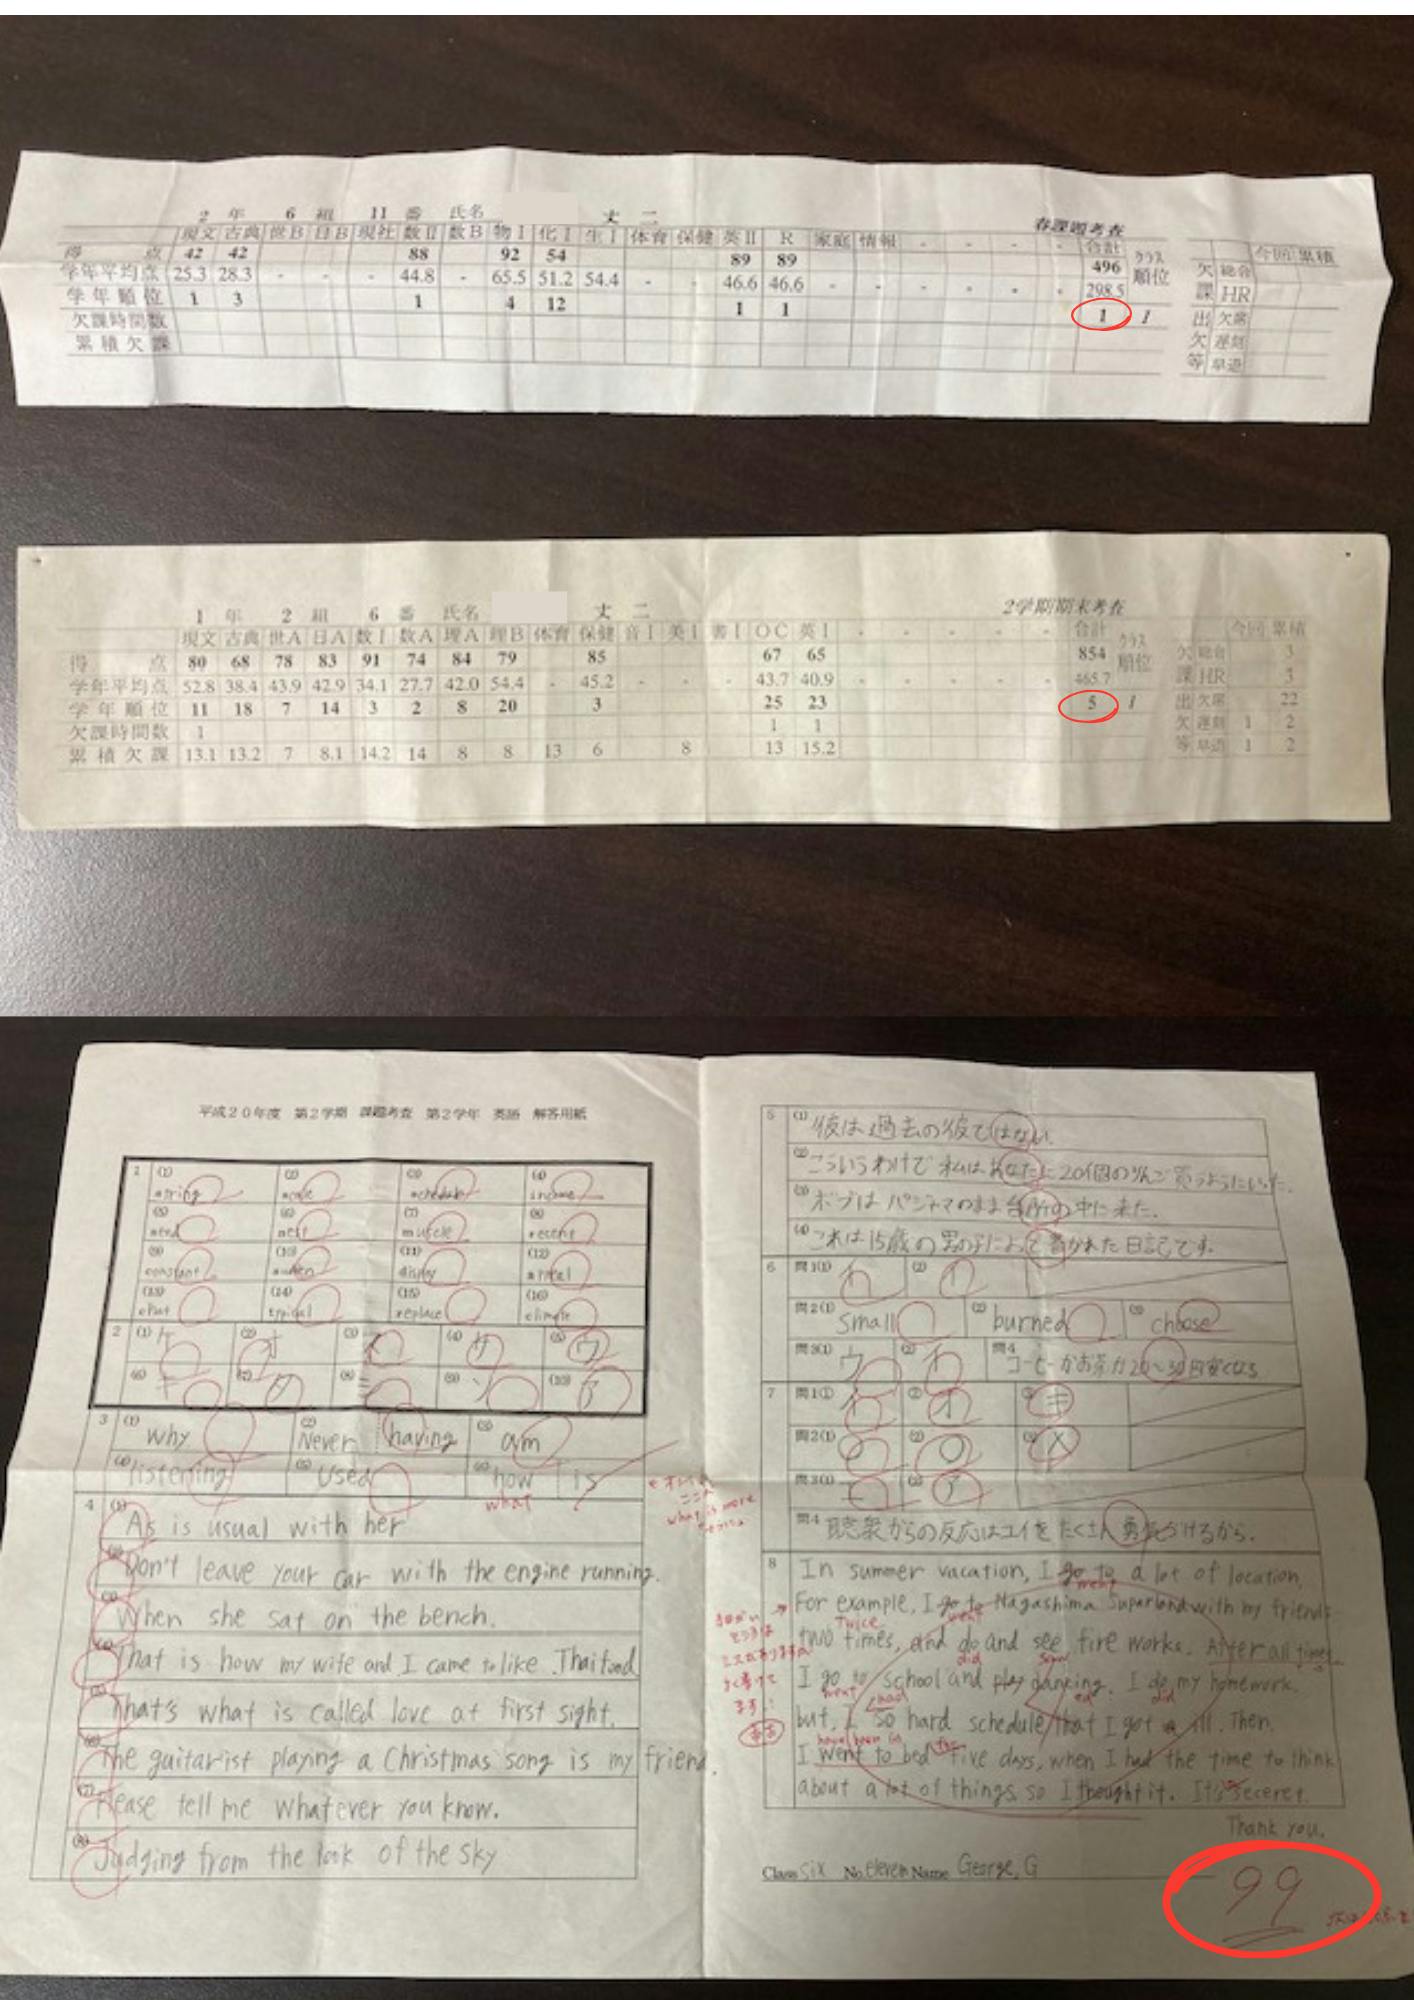 2 年 6 組 11 番 氏名 丈 二 春課題考査
現文 古典 世B 日B 現社 数Ⅱ 数B 物Ⅰ 化Ⅰ 生Ⅰ 体育 保健 英Ⅱ R 家庭 情報 - - - - 合計 クラス順位 今回 累積
得点 42 42 88 92 54 89 89 496 欠 総合
学年平均点 25.3 28.3 - - - 44.8 - 65.5 51.2 54.4 - - 46.6 46.6 - - - - - - 298.5 課 HR
学年順位 1 3 1 4 12 1 1 1 1 出 欠席
欠課時間数 欠 遅刻
累積欠課 等 早退
1 年 2 組 6 番 氏名 丈 二 2学期期末考査
現文 古典 世A 日A 数Ⅰ 数A 理A 理B 体育 保健 音Ⅰ 美Ⅰ 書Ⅰ OC 英Ⅰ - - - - - 合計 クラス順位 今回 累積
得点 80 68 78 83 91 74 84 79 85 67 65 854 欠 総合 3
学年平均点 52.8 38.4 43.9 42.9 34.1 27.7 42.0 54.4 - 45.2 - - - 43.7 40.9 - - - - - 465.7 課 HR 3
学年順位 11 18 7 14 3 2 8 20 3 25 23 5 1 出 欠席 22
欠課時間数 1 1 1 欠 遅刻 1 2
累積欠課 13.1 13.2 7 8.1 14.2 14 8 8 13 6 8 13 15.2 等 早退 1 2
平成20年度 第2学期 課題考査 第2学年 英語 解答用紙
1 (1) string (2) (3) schedule (4) income
(5) need (6) (7) muscle (8) recent
(9) constant (10) (11) display (12)
(13) (14) typical (15) replace (16) climate
2 (1) ケ (2) オ (3) (4) サ (5) ウ
(6) キ (7) タ (8) ニ (9) ソ (10) ア
3 (1) why (2) Never having (3) am
(4) listening (5) used (6) how is
what
what is more
4 (1) As is usual with her
(2) Don't leave your car with the engine running.
(3) When she sat on the bench.
(4) That is how my wife and I came to like Thaifood
(5) That's what is called love at first sight.
(6) The guitarist playing a Christmas song is my friend.
(7) Please tell me whatever you know.
(8) Judging from the look of the sky
5 (1) 彼は過去の彼ではない.
(2) こういうわけで私はあなたに20個のりんご買うようにいった.
(3) ボブはパジャマのまま台所の中に来た.
(4) これは15歳の男の子によって書かれた日記です.
6 問1(1) イ (2) イ
問2(1) small (2) burned (3) choose
問3(1) ウ (2) イ 問4 コーヒーかお茶が20〜30円安くなる
7 問1(1) イ (2) オ (3) キ
問2(1) ○ (2) ○ (3) ×
問3(1) (2) ア
問4 聴衆からの反応はユイをたくさん勇気づけるから.
8 In summer vacation, I go to a lot of location.
went
For example, I go to Nagashima Suparland with my friends
went
Twice
two times, and do and see fire works. After all times
did saw
I go to school and play dancing. I do my homework.
went ed did
but, I so hard schedule that I got a ill. Then.
had
have been in for
I went to bed five days, when I had the time to think
about a lot of things so I thought it. It's seceret.
Thank you.
Class six No. eleven Name George, G
99